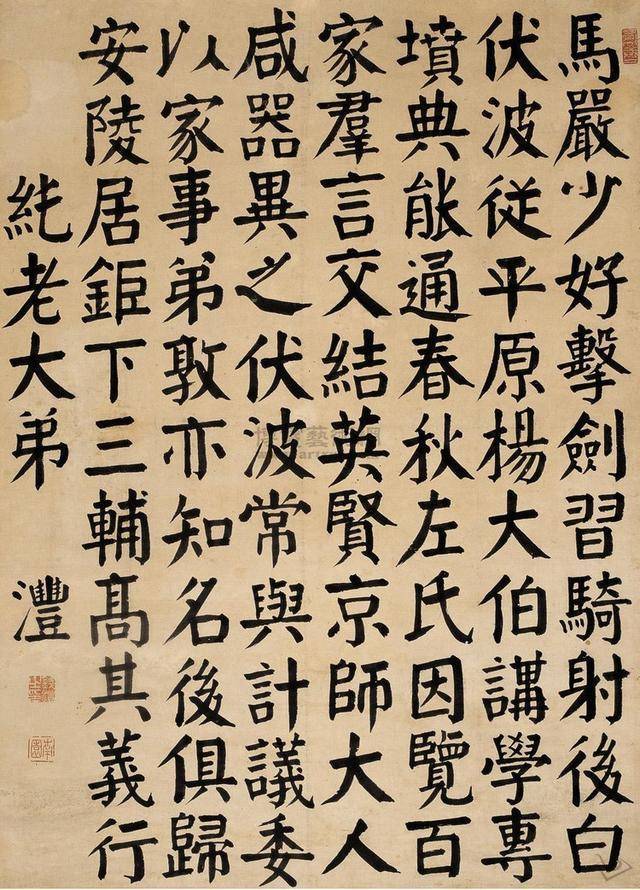 馬嚴少好擊劍習騎射後白
伏波從平原楊大伯講學專
墳典能通春秋左氏因覽百
家羣言交結英賢京師大人
咸器異之伏波常與計議委
以家事弟敦亦知名後俱歸
安陵居鉅下三輔髙其義行
純老大弟
灃